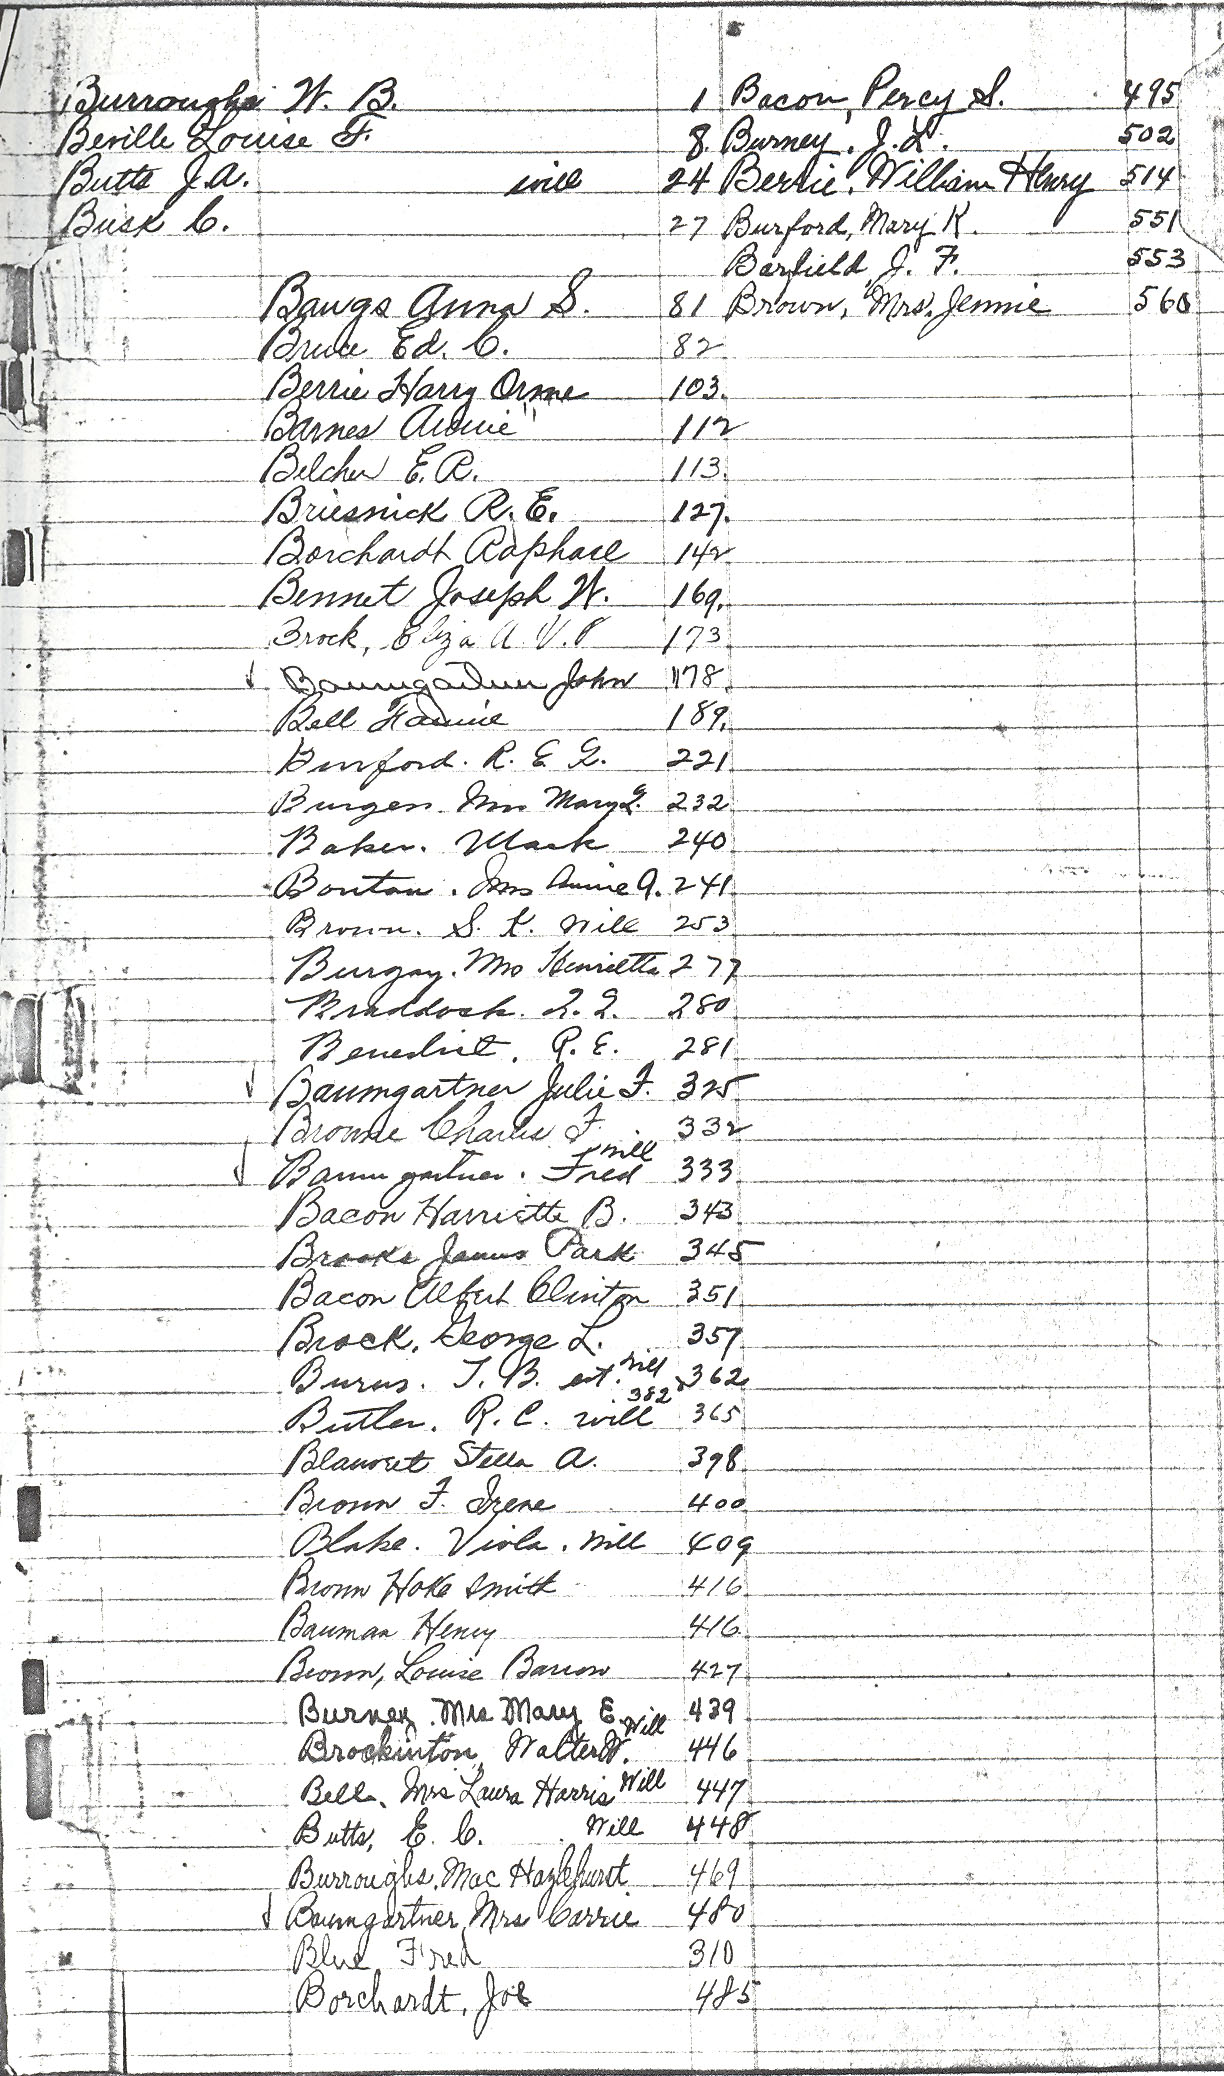 Burroughs W. B. 1 Bacon, Percy S. 495
Beville Louise F. 8. Burney, J. L. 502
Butts J. A. will 24 Berrie, William Henry 514
Busk C. 27 Burford, Mary K. 551
Barfield, J. F. 553
Bangs Anna S. 81 Brown, Mrs. Jennie 560
Bruce Ed. C. 82
Berrie Harry Orme 103.
Barnes Annie 112
Belcher E. R. 113.
Briesnick R. E. 127.
Borchardt Raphael 142
Bennet Joseph W. 169.
Brock, Eliza A. V. P 173
Baumgartner John 178.
Bell Fannie 189.
Burford. R. E. G. 221
Burgen Mrs Mary G. 232
Baker. Mack 240
Bonton. Mrs Annie A. 241
Brown. S. K. Will 253
Burgay. Mrs Henrietta 277
Braddock. 280
Benedict. R. E. 281
Baumgartner Julie F. 325
Browne Charles F. 332
Baumgartner. Fred will 333
Bacon Harriette B. 343
Brooks James Park 345
Bacon Albert Clinton 351
Brock, George L. 357
Burns. T. B. est. will 362
382
Butler. R. C. will 365
Blauvet Stella A. 398
Brown F. Irene 400
Blake. Viola. Will 409
Brown Hoke Smith 416
Bauman Henry 416
Brown, Louise Barrow 427
Burney. Mrs Mary E. 439
Brockinton, Walter W. Will 446
Bell, Mrs Laura Harris Will 447
Butts, E. C. Will 448
Burroughs, Mac Hazlehurst 469
Baumgartner, Mrs Carrie 480
Blue, Fred 310
Borchardt, Joe 485